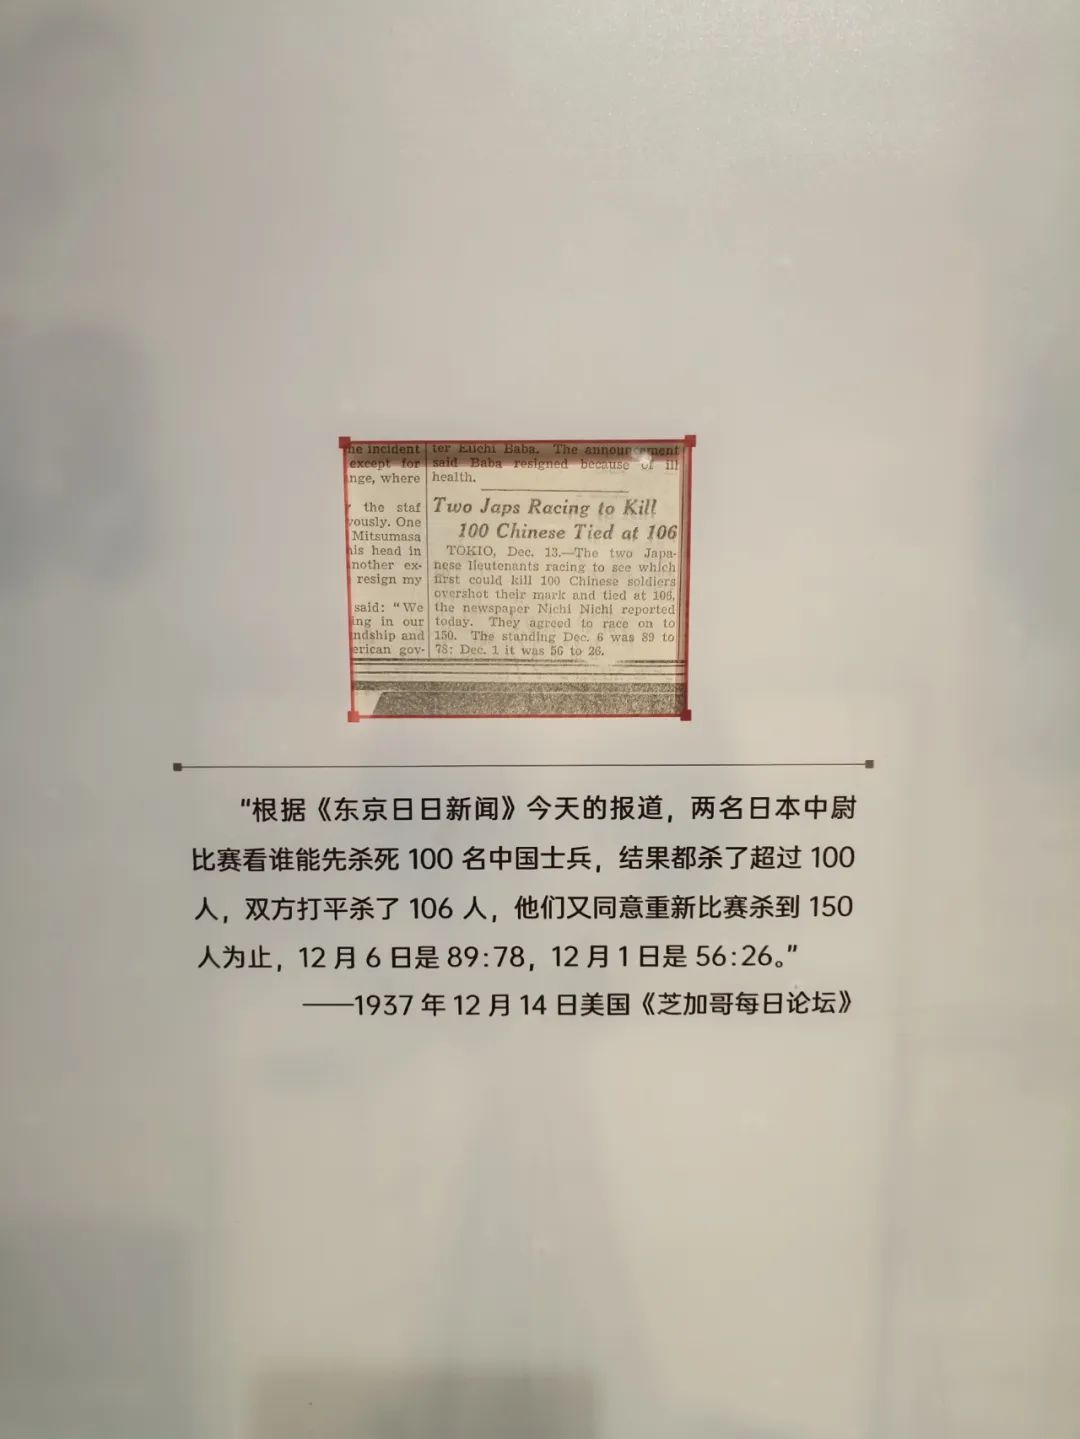 he incident
except for
nge, where
the staf
vously. One
Mitsumasa
his head in
nother ex-
resign my
said: "We
ing in our
ndship and
erican gov-
ter Eiichi Baba. The announcement
said Baba resigned because of ill
health.
Two Japs Racing to Kill
100 Chinese Tied at 106
TOKIO, Dec. 13.—The two Japa-
nese lieutenants racing to see which
first could kill 100 Chinese soldiers
overshot their mark and tied at 106,
the newspaper Nichi Nichi reported
today. They agreed to race on to
150. The standing Dec. 6 was 89 to
78; Dec. 1 it was 56 to 26.
“根据《东京日日新闻》今天的报道，两名日本中尉
比赛看谁能先杀死 100 名中国士兵，结果都杀了超过 100
人，双方打平杀了 106 人，他们又同意重新比赛杀到 150
人为止，12 月 6 日是 89:78，12 月 1 日是 56:26。”
——1937 年 12 月 14 日美国《芝加哥每日论坛》